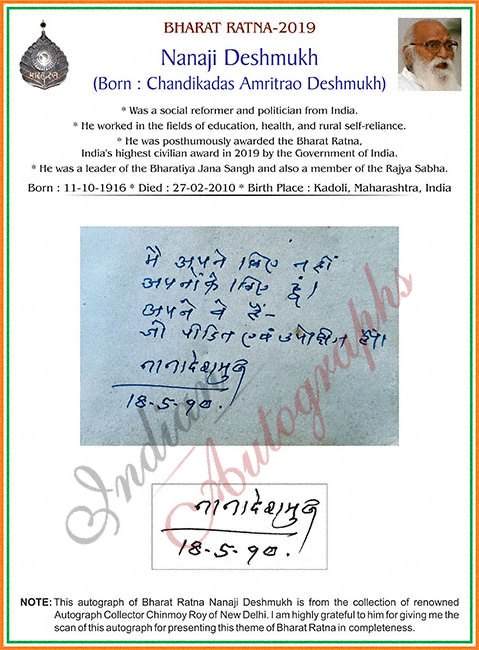 BHARAT RATNA-2019
Nanaji Deshmukh
(Born : Chandikadas Amritrao Deshmukh)
* Was a social reformer and politician from India.
* He worked in the fields of education, health, and rural self-reliance.
* He was posthumously awarded the Bharat Ratna,
India's highest civilian award in 2019 by the Government of India.
* He was a leader of the Bharatiya Jana Sangh and also a member of the Rajya Sabha.
Born : 11-10-1916 * Died : 27-02-2010 * Birth Place : Kadoli, Maharashtra, India
मै अपने लिए नहीं
अपनों के लिए हूं।
अपने वे हैं-
जो पीडित एवं उपेक्षित हैं।
नाना देशमुख
18-5-90.
Indian
Autographs
नाना देशमुख
18-5-90.
NOTE: This autograph of Bharat Ratna Nanaji Deshmukh is from the collection of renowned
Autograph Collector Chinmoy Roy of New Delhi. I am highly grateful to him for giving me the
scan of this autograph for presenting this theme of Bharat Ratna in completeness.